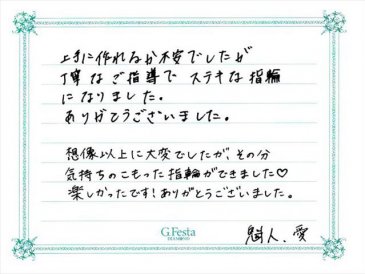 上手に作れるか不安でしたが
丁寧なご指導で ステキな指輪
になりました。
ありがとうございました。
想像以上に大変でしたが、その分
気持ちのこもった指輪ができました♡
楽しかったです！ありがとうございました。
G.Festa
DIAMOND
人、愛